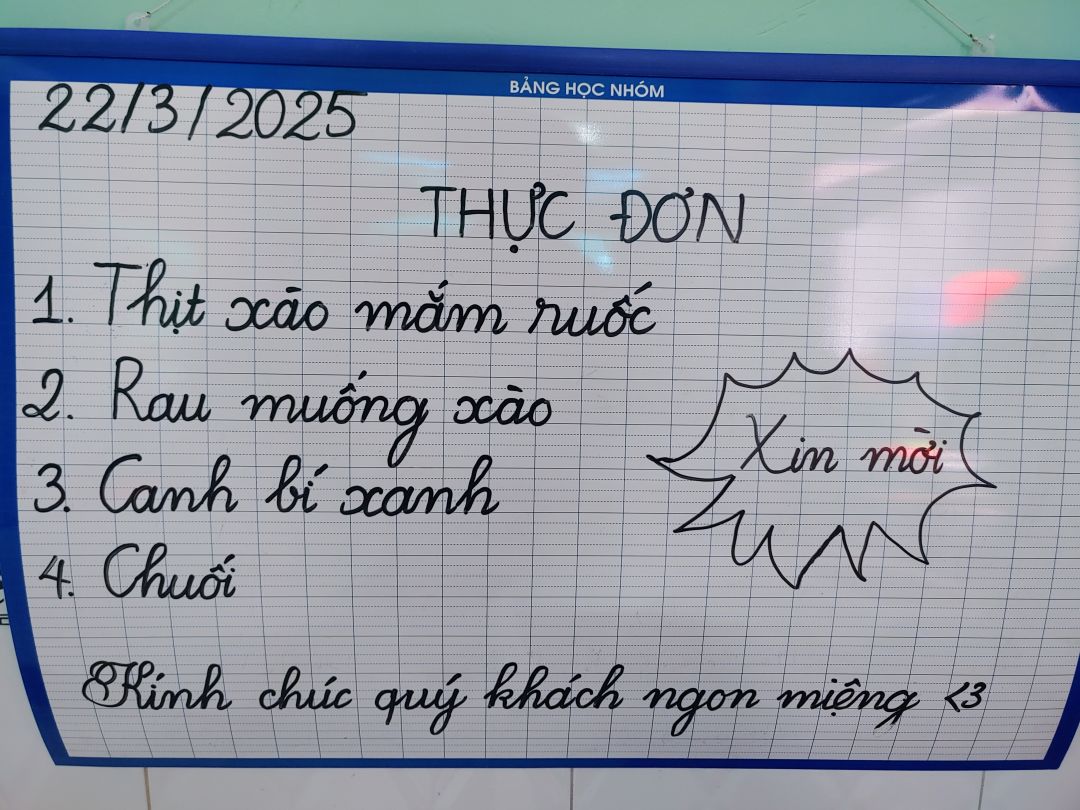 BẢNG HỌC NHÓM
22/3/2025
THỰC ĐƠN
1. Thịt xào mắm ruốc
2. Rau muống xào
3. Canh bí xanh
4. Chuối
Xin mời
Kính chúc quý khách ngon miệng <3